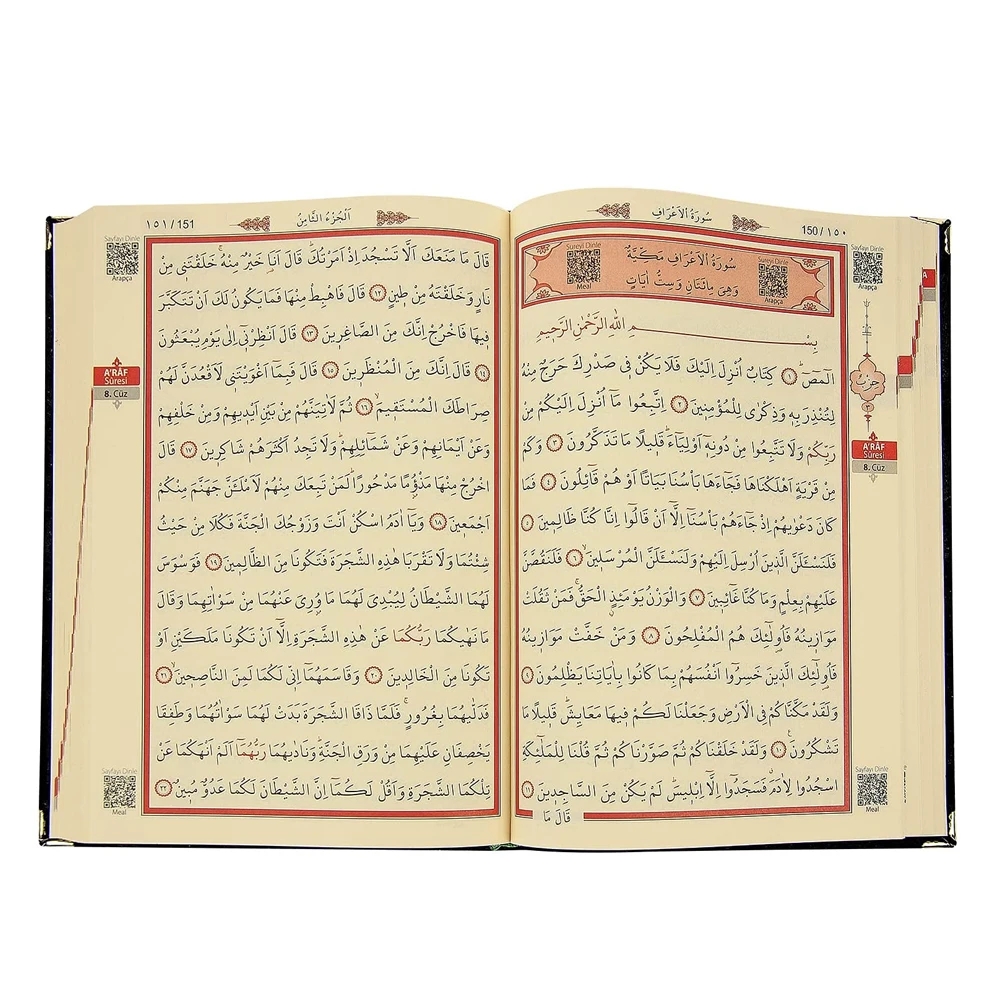 سُورَةُ الْاَعْرَافِ
150/١٥٠
Sureyi Dinle
Meal
سُورَةُ الْاَعْرَافِ مَكِّيَّةٌ
وَهِيَ مِائَتَانِ وَسِتُّ اٰيَاتٍ
Sureyi Dinle
Arapça
Sayfayı Dinle
Arapça
بِسْمِ اللّٰهِ الرَّحْمٰنِ الرَّحٖيمِ
الٓمٓصٓ ﴿١﴾ كِتَابٌ اُنْزِلَ اِلَيْكَ فَلَا يَكُنْ فٖي صَدْرِكَ حَرَجٌ مِنْهُ
لِتُنْذِرَ بِهٖ وَذِكْرٰى لِلْمُؤْمِنٖينَ ﴿٢﴾ اِتَّبِعُوا مَٓا اُنْزِلَ اِلَيْكُمْ مِنْ
رَبِّكُمْ وَلَا تَتَّبِعُوا مِنْ دُونِهٖٓ اَوْلِيَٓاءَ قَلٖيلًا مَا تَذَكَّرُونَ ﴿٣﴾ وَكَمْ
مِنْ قَرْيَةٍ اَهْلَكْنَاهَا فَجَٓاءَهَا بَأْسُنَا بَيَاتًا اَوْ هُمْ قَٓائِلُونَ ﴿٤﴾ فَمَا
كَانَ دَعْوٰيهُمْ اِذْ جَٓاءَهُمْ بَأْسُنَٓا اِلَّٓا اَنْ قَالُٓوا اِنَّا كُنَّا ظَالِمٖينَ ﴿٥﴾
فَلَنَسْـَٔلَنَّ الَّذٖينَ اُرْسِلَ اِلَيْهِمْ وَلَنَسْـَٔلَنَّ الْمُرْسَلٖينَ ﴿٦﴾ فَلَنَقُصَّنَّ
عَلَيْهِمْ بِعِلْمٍ وَمَا كُنَّا غَٓائِبٖينَ ﴿٧﴾ وَالْوَزْنُ يَوْمَئِذٍ الْحَقُّ فَمَنْ ثَقُلَتْ
مَوَازٖينُهُ فَاُو۬لٰٓئِكَ هُمُ الْمُفْلِحُونَ ﴿٨﴾ وَمَنْ خَفَّتْ مَوَازٖينُهُ
فَاُو۬لٰٓئِكَ الَّذٖينَ خَسِرُٓوا اَنْفُسَهُمْ بِمَا كَانُوا بِاٰيَاتِنَا يَظْلِمُونَ ﴿٩﴾
وَلَقَدْ مَكَّنَّاكُمْ فِي الْاَرْضِ وَجَعَلْنَا لَكُمْ فٖيهَا مَعَايِشَ قَلٖيلًا مَا
تَشْكُرُونَ ﴿١٠﴾ وَلَقَدْ خَلَقْنَاكُمْ ثُمَّ صَوَّرْنَاكُمْ ثُمَّ قُلْنَا لِلْمَلٰٓئِكَةِ
اسْجُدُوا لِاٰدَمَ فَسَجَدُٓوا اِلَّٓا اِبْلٖيسَ لَمْ يَكُنْ مِنَ السَّاجِدٖينَ ﴿١١﴾
قَالَ مَا
حِزْبٌ
٢
A'RÂF
Sûresi
8. Cüz
Sayfayı Dinle
Meal
اَلْجُزْءُ الثَّامِنُ
١٥١/151
Sayfayı Dinle
Arapça
قَالَ مَا مَنَعَكَ اَلَّا تَسْجُدَ اِذْ اَمَرْتُكَ قَالَ اَنَا۬ خَيْرٌ مِنْهُ خَلَقْتَنٖي مِنْ
نَارٍ وَخَلَقْتَهُ مِنْ طٖينٍ ﴿١٢﴾ قَالَ فَاهْبِطْ مِنْهَا فَمَا يَكُونُ لَكَ اَنْ تَتَكَبَّرَ
فٖيهَا فَاخْرُجْ اِنَّكَ مِنَ الصَّاغِرٖينَ ﴿١٣﴾ قَالَ اَنْظِرْنٖٓي اِلٰى يَوْمِ يُبْعَثُونَ
﴿١٤﴾ قَالَ اِنَّكَ مِنَ الْمُنْظَرٖينَ ﴿١٥﴾ قَالَ فَبِمَٓا اَغْوَيْتَنٖي لَاَقْعُدَنَّ لَهُمْ
صِرَاطَكَ الْمُسْتَقٖيمَ ﴿١٦﴾ ثُمَّ لَاٰتِيَنَّهُمْ مِنْ بَيْنِ اَيْدٖيهِمْ وَمِنْ خَلْفِهِمْ
وَعَنْ اَيْمَانِهِمْ وَعَنْ شَمَٓائِلِهِمْ وَلَا تَجِدُ اَكْثَرَهُمْ شَاكِرٖينَ ﴿١٧﴾ قَالَ
اخْرُجْ مِنْهَا مَذْؤُ۫مًا مَدْحُورًا لَمَنْ تَبِعَكَ مِنْهُمْ لَاَمْلَـَٔنَّ جَهَنَّمَ مِنْكُمْ
اَجْمَعٖينَ ﴿١٨﴾ وَيَٓا اٰدَمُ اسْكُنْ اَنْتَ وَزَوْجُكَ الْجَنَّةَ فَكُلَا مِنْ حَيْثُ
شِئْتُمَا وَلَا تَقْرَبَا هٰذِهِ الشَّجَرَةَ فَتَكُونَا مِنَ الظَّالِمٖينَ ﴿١٩﴾ فَوَسْوَسَ
لَهُمَا الشَّيْطَانُ لِيُبْدِيَ لَهُمَا مَا وُ۫رِيَ عَنْهُمَا مِنْ سَوْاٰتِهِمَا وَقَالَ
مَا نَهٰيكُمَا رَبُّكُمَا عَنْ هٰذِهِ الشَّجَرَةِ اِلَّٓا اَنْ تَكُونَا مَلَكَيْنِ اَوْ
تَكُونَا مِنَ الْخَالِدٖينَ ﴿٢٠﴾ وَقَاسَمَهُمَٓا اِنّٖي لَكُمَا لَمِنَ النَّاصِحٖينَ ﴿٢١﴾
فَدَلّٰيهُمَا بِغُرُورٍ فَلَمَّا ذَاقَا الشَّجَرَةَ بَدَتْ لَهُمَا سَوْاٰتُهُمَا وَطَفِقَا
يَخْصِفَانِ عَلَيْهِمَا مِنْ وَرَقِ الْجَنَّةِ وَنَادٰيهُمَا رَبُّهُمَٓا اَلَمْ اَنْهَكُمَا عَنْ
تِلْكُمَا الشَّجَرَةِ وَاَقُلْ لَكُمَٓا اِنَّ الشَّيْطَانَ لَكُمَا عَدُوٌّ مُبٖينٌ ﴿٢٢﴾
A'RÂF
Sûresi
8. Cüz
Sayfayı Dinle
Meal